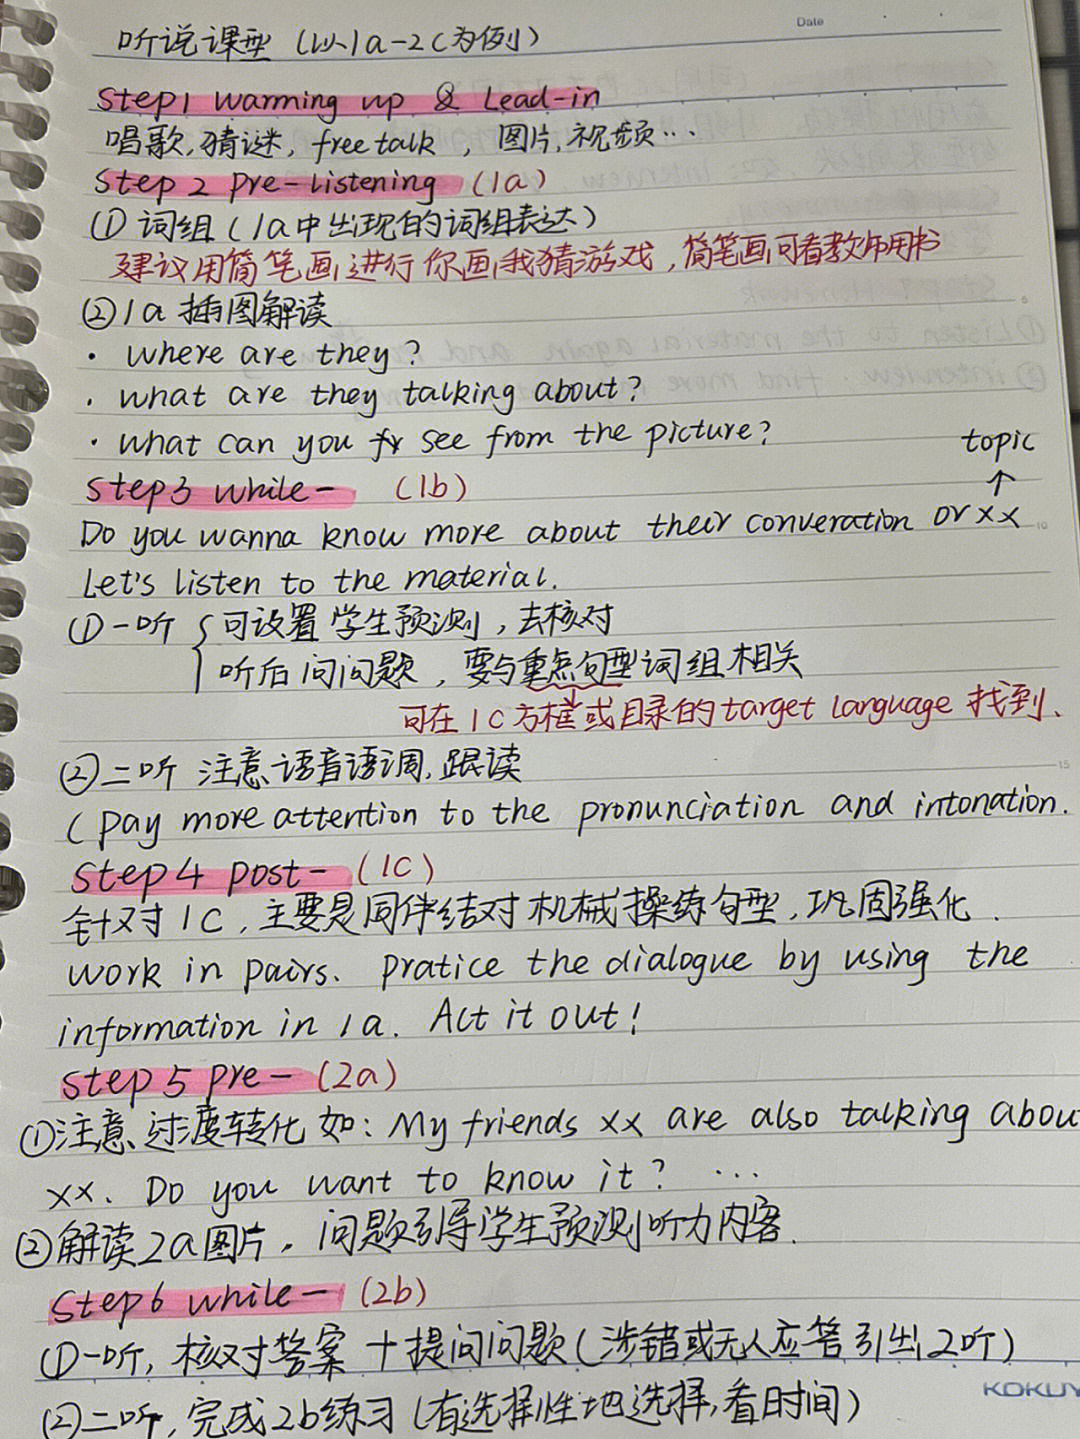 Date
听说课型 (以1a-2c为例)
Step1 warming up & Lead-in
唱歌,猜谜, free talk, 图片,视频…
Step 2 pre-listening (1a)
① 词组 (1a中出现的词组表达)
建议用简笔画进行你画我猜游戏,简笔画可看教师用书
②1a 插图解读
· where are they?
· what are they talking about?
· what can you see from the picture?
topic
↑
Step3 while- (1b)
Do you wanna know more about their converation or xx
Let's listen to the material.
①一听 { 可设置学生预测,去核对
听后问问题,要与重点句型词组相关
可在1c方框或目录的target language 找到、
②二听 注意语音语调,跟读
(pay more attention to the pronunciation and intonation.
Step4 post- (1c)
针对1c,主要是同伴结对机械操练句型,巩固强化.
work in pairs. pratice the dialogue by using the
information in 1a. Act it out!
Step 5 pre- (2a)
①注意过渡转化 如: My friends xx are also talking abou
xx. Do you want to know it? …
②解读2a图片,问题引导学生预测听力内容.
Step6 while- (2b)
①一听,核对答案+提问问题(涉错或无人应答引出2听)
②二听,完成2b练习(有选择性地选择,看时间)
KOKUY